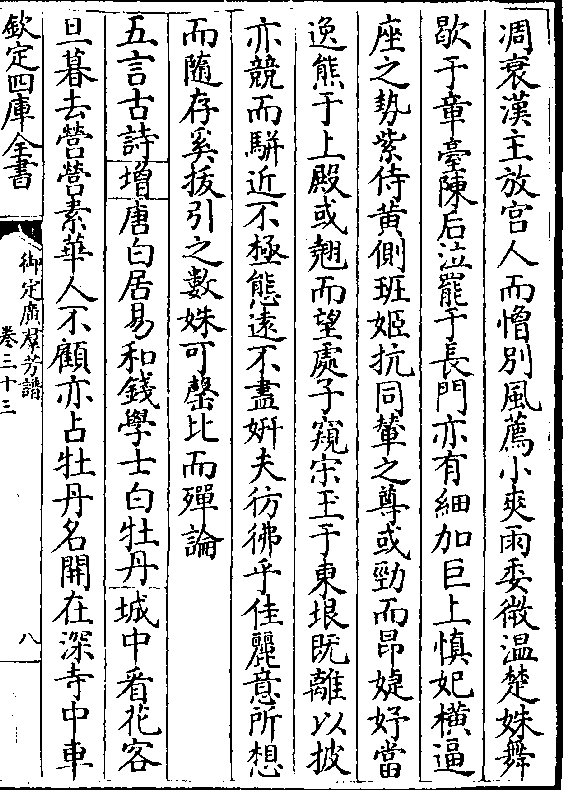 凋衰漢主放宫人而憎别風薦小爽雨委微温楚姝舞
歇于章臺陳后泣罷于長門亦有細加巨上慎妃横逼
座之勢紫侍黄側班姬抗同輦之尊或勁而昂婕妤當
逸熊于上殿或翹而望處子窺宋玉于東垠既離以披
亦競而駢近不極態遠不盡妍夫彷彿乎佳麗意所想
而隨存奚拔引之數姝可罄比而殫論
五言古詩增唐白居易和錢學士白牡丹城中看花客
旦暮去營營素華人不顧亦占牡丹名開在深寺中車
欽定四庫全書
御定廣羣芳譜
卷三十三
八